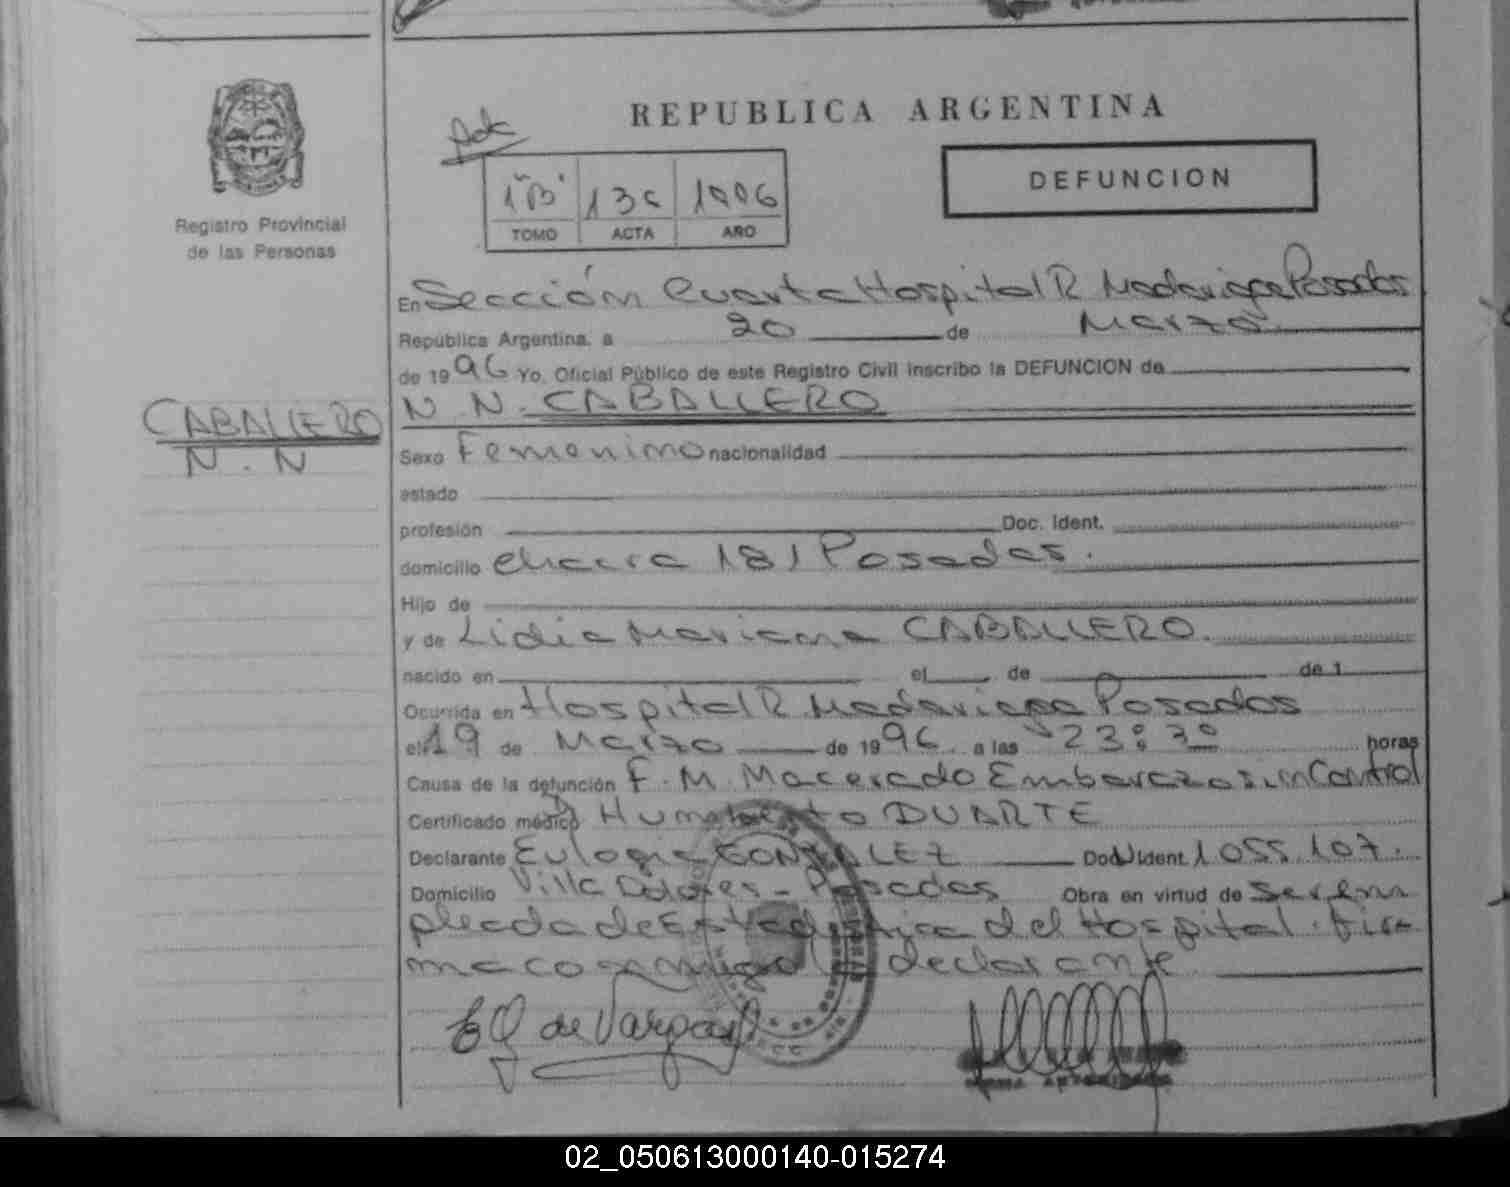 REPUBLICA ARGENTINA
DEFUNCION
1 "B" 1996
TOMO ACTA AÑO
Registro Provincial
de las Personas
En Sección Cuarta Hospital R Madariaga Posadas
República Argentina, a 20 de Marzo
de 1996 Yo, Oficial Público de este Registro Civil inscribo la DEFUNCION de
CABALLERO
N. N
N N. CABALLERO
Sexo Femenino nacionalidad
estado
profesión Doc. Ident.
domicilio chacra 181 Posadas.
Hijo de
y de Lidia Mariana CABALLERO.
nacido en el de de 1
Ocurrida en Hospital R Madariaga Posadas
el 19 de Marzo de 1996 a las 23:30 horas
Causa de la defunción F. M. Macerado Embarazo sin Control
Certificado médico Dr Humberto DUARTE
Declarante Eulogia GONZALEZ Doc. Ident. 1.055.107.
Domicilio Villa Dolores - Posadas Obra en virtud de ser em
pleada de Estadistica del Hospital. fir
ma conmigo declarante
E G de Vargas
02_050613000140-015274